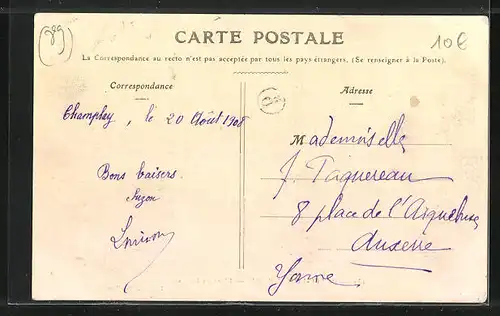 (89)
10€
CARTE POSTALE
La Correspondance au recto n'est pas acceptée par tous les pays étrangers. (Se renseigner à la Poste).
Correspondance
Champlay, le 20 Août 1908
Bons baisers.
Suzon
Adresse
Mademoiselle
J. Taquereau
8 place de l'Aiguebuse
Auxerre
Yonne